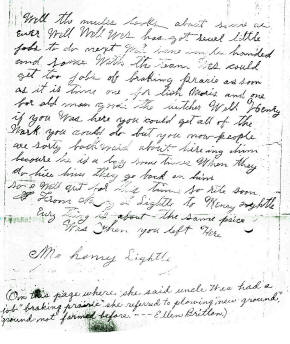 Well the mules looks about same as
ever Well Will Wes has got sevrel little
jobs to do next
and some with the team Wes could
get two jobs of braking prarie as soon
as it is time one for Lish Moris and one
for old man
if you Was here you could get all of the
Work you could do but you now people
are sorty backward about hireing him
because he is a lazy some times When they
do hire him they go back on him
so I Will quit for this time so rite soon
From Mo Lightle to Henry Lightle
Evry thing is about the same price
Was When you left Here
Mo henry Lightle
(On this page where she said uncle Wes had a
job "braking prairie" she referred to plowing "new ground,"
ground not farmed before --- Ellen Brittom)